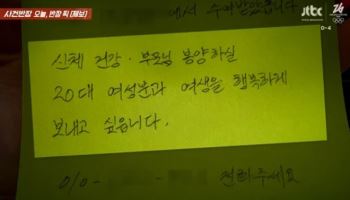 사건반장 오늘, 반장 픽 [제보]
jtbc
신체 건강·부모님 봉양하실
20대 여성분과 여생을 행복하게
보내고 싶습니다.
010-
연락주세요